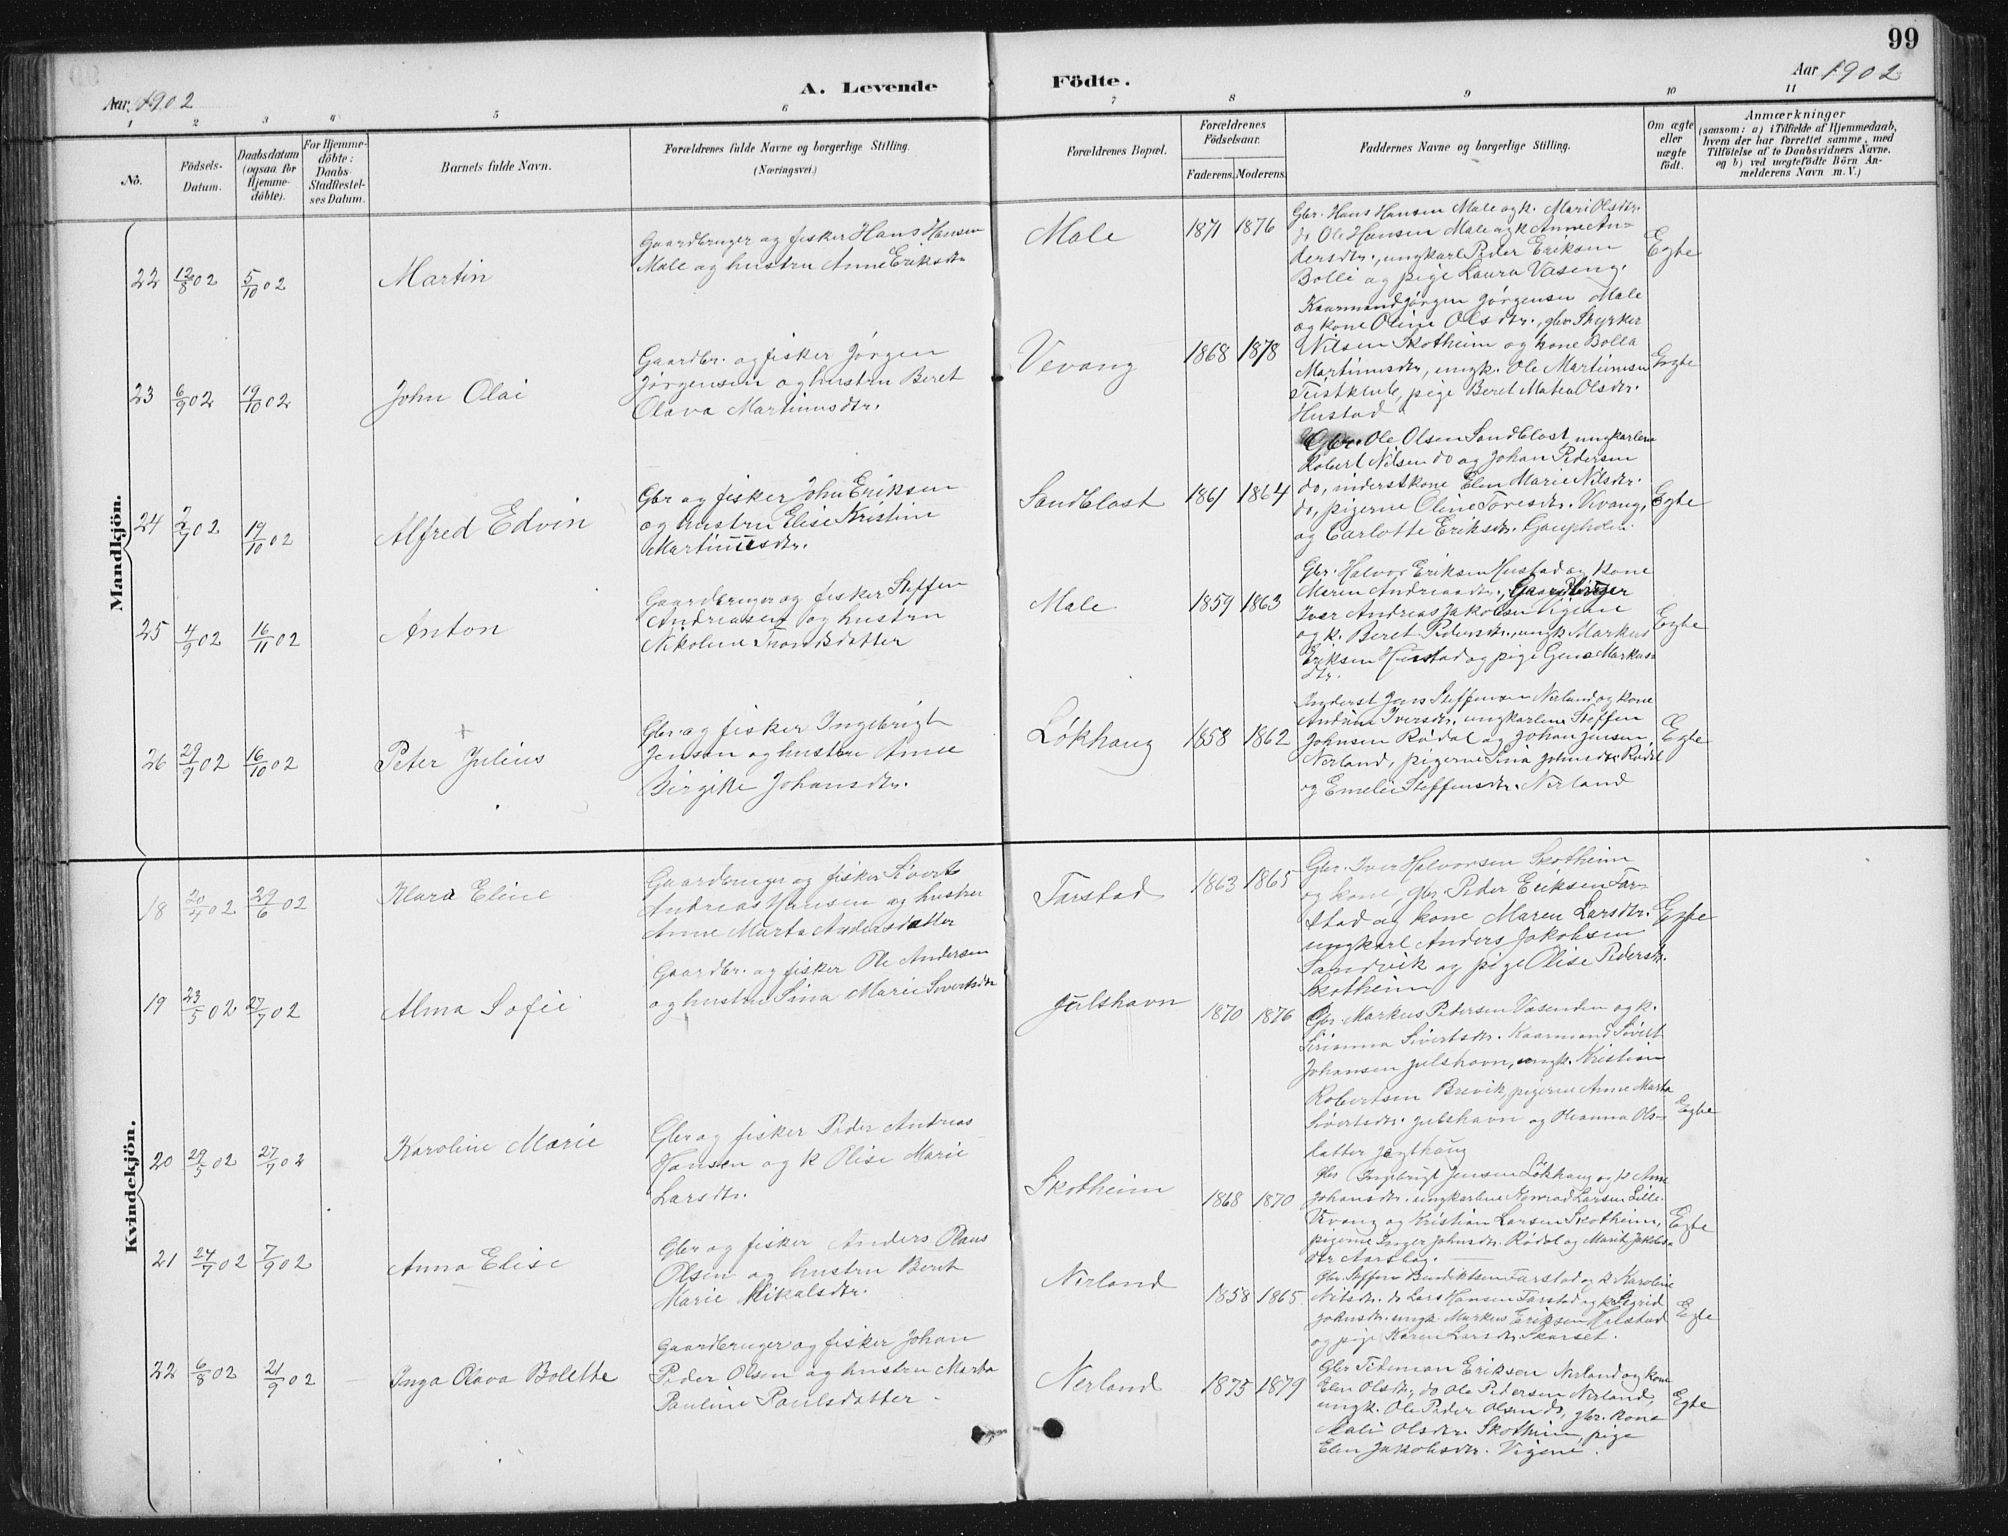 99
Aar. 1902
A. Levende
Födte.
Aar 1902
1 2 3 4 5 6 7 8 9 10 11
No.
Födsels-
Datum.
Daabsdatum
(ogsaa for
Hjemme-
döbte).
For Hjemme-
döbte:
Daabs-
Stadfæstel-
ses Datum.
Barnets fulde Navn.
Forældrenes fulde Navne og borgerlige Stilling.
(Næringsvei.)
Forældrenes Bopæl.
Forældrenes
Födselsaar.
Faderens.
Moderens.
Faddernes Navne og borgerlige Stilling.
Om ægte
eller
uægte
født.
Anmærkninger
(saasom: a) i Tilfælde af Hjemmedaab,
hvem der har forrettet samme, med
Tilföielse af to Daabsvidners Navne.
og b) ved uægtefödte Börn An-
melderens Navn m. V.)
Mandkjön.
22 12/8 02 5/10 02 Martin
Gaardbruger og fisker Hans Hansen
Male og hustru Anne Eriksdtr
Male 1871 1876
Gbr. Hans Hansen Male og k. Mari Olsdtr.
do Ole Hansen Male og k Anne An-
dersdtr., ungkarl Peder Eriksen
Bolli og pige Laura Vaseng.
Egte
23 6/9 02 19/10 02 John Olai
Gaardbr. og fisker Jørgen
Jørgensen og hustru Beret
Olava Martinusdtr.
Vevang 1868 1878
Kaarmand Jørgen Jørgensen Male
og kone Oline Olsdtr., gbr. Styrker
Nilsen Skotheim og kone Bolla
Martinusdtr, ungk. Ole Martinusen
Teistklub, pige Beret Matea Olsdtr.
Hustad
Egte
24 02 19/10 02 Alfred Edvin
Gbr og fisker John Eriksen
og hustru Elise Kristine
Martinusdtr.
Sandblast 1861 1864
Gbr. Ole Olsen Sandblast, ungkarlene
Robert Nilsen do og Johan Pedersen
do, inderstkone Elen Marie Nilsdtr.
do, pigerne Oline Toresdtr. Vevang,
og Carlotte Eriksdtr.
Egte
25 4/9 02 16/11 02 Anton
Gaardbruger og fisker Steffen
Andreasen og hustru
Nikoline Trondsdatter
Male 1859 1863
Gbr. Halvor Eriksen Hustad og kone
Maren Andreasdtr., Gaardbruger
Iver Andreas Jakobsen
og k. Beret Pedersdtr., ungk Markus
Eriksen Hustad og pige Markus-
dtr.
Egte
26 29/9 02 16/10 02 Peter Julius
Gbr og fisker Ingebrigt
Jensen og hustru Anne
Birgitte Johansdtr.
Løkhaug 1858 1862
Inderst Jens Steffensen Nerland og kone
Iversdtr, ungkarlene Steffen
Johnsen Rødal og Johan Jensen
Nerland, pigerne Sina Johnsdtr Rødal
og Emelie Steffensdtr. Nerland
Egte
Kvindekjön.
18 20/4 02 29/6 02 Klara Eline
Gaardbruger og fisker Sivert
Andreas Hansen og hustru
Anne Marta Andersdatter
Farstad 1863 1865
Gbr. Iver Halvorsen Skotheim
og kone, gbr Peder Eriksen Far-
stad og kone Maren Larsdtr.
ungkarl Anders Jakobsen
Sandvik og pige Olise Pedersdtr.
Skotheim
Egte
19 23/5 02 27/7 02 Alma Sofie
Gaardbr. og fisker Ole Andersen
og hustru Sina Marie Sivertsdtr
Julshavn 1870 1876
Gbr. Markus Pedersen Vasenden og k.
Serianna Sivertsdtr. Kaarmand Sivert
Johansen Julshavn, ungk. Kristian
Robertsen Brevik, pigerne Anne Marta
Sivertsdtr. Julshavn og Oleanna Ols-
datter Jegthaug
Egte
20 29/5 02 27/7 02 Karoline Marie
Gbr og fisker Peder Andreas
Hansen og k Olise Marie
Larsdtr.
Skotheim 1868 1870
Gbr Ingebrigt Jensen Løkhaug og k Anne
Johansdtr. ungkarlene Konrad Larsen Lille-
Vevang og Kristian Larsen Skotheim,
pigerne Inger Johnsdtr. Rødal og Marit Jakobs-
dtr Aarsbog.
Egte
21 24/7 02 7/9 02 Anna Elise
Gbr og fisker Anders Olaus
Olsen og hustru Beret
Marie Mikalsdtr.
Nerland 1858 1865
Gbr. Steffen Bendiktsen Farstad og k Karoline
Nilsdtr. do Lars Hansen Farstad og k Sigrid
Johnsdtr. ungk Markus Eriksen Hustad
og pige Karen Larsdtr. Skarset.
Egte
22 6/8 02 21/9 02 Inga Olava Bolette
Gaardbruger og fisker Johan
Peder Olsen og hustru Marta
Pauline Paulsdatter
Nerland 1875 1879
Gbr Tideman Eriksen Nerland og kone
Elen Olsdtr, do Ole Pedersen Nerland,
ungk. Ole Peder Olsen do, gbr. kone
Mali Olsdtr. Skotheim, pige
Elen Jakobsdtr. Vigene.
Egte